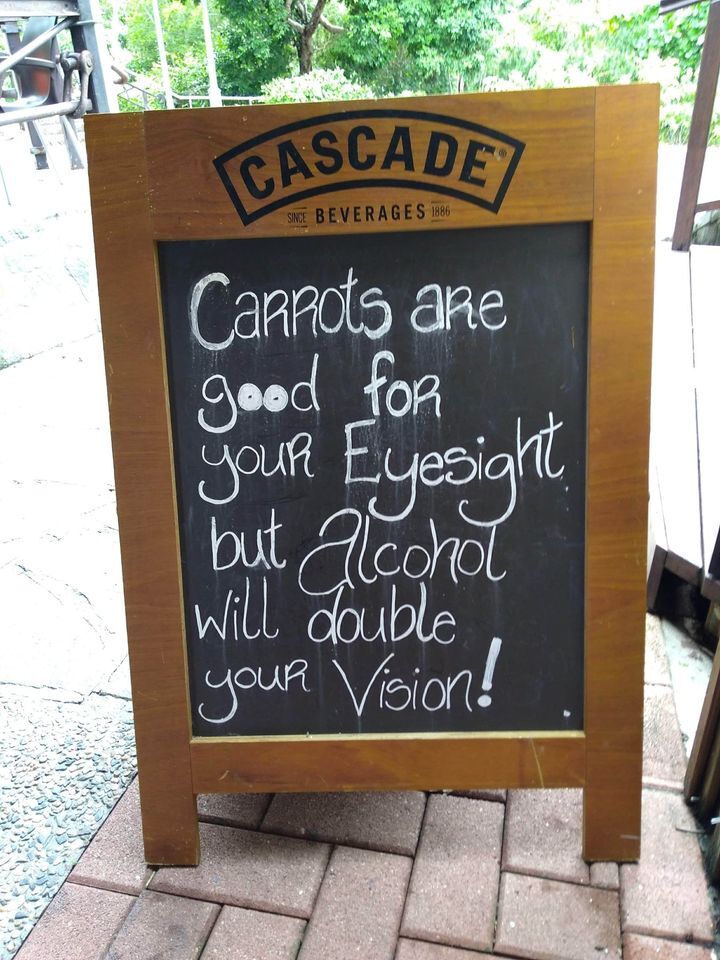 CASCADE®
SINCE BEVERAGES 1886
Carrots are
good for
your Eyesight
but Alcohol
will double
your Vision!